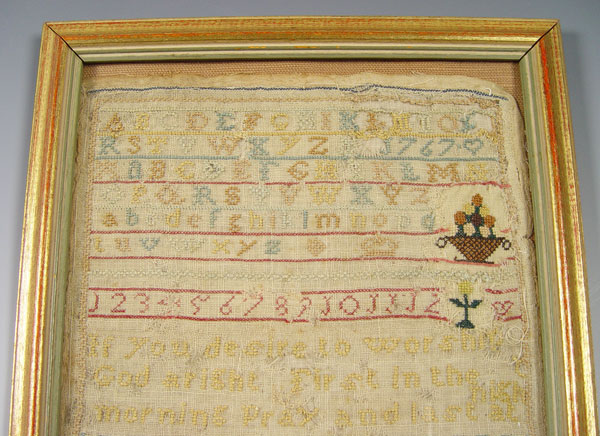 A B C D E F G H I K L M N O P
R S T V W X Y Z 1767
A B C D E F G H I K L M N
O P Q R S T V W X Y Z
a b c d e f g h i l m n o p q
t u v w x y z
1 2 3 4 5 6 7 8 9 10 11 12
If you desire to worship
God aright First in the
morning Pray and last at
night